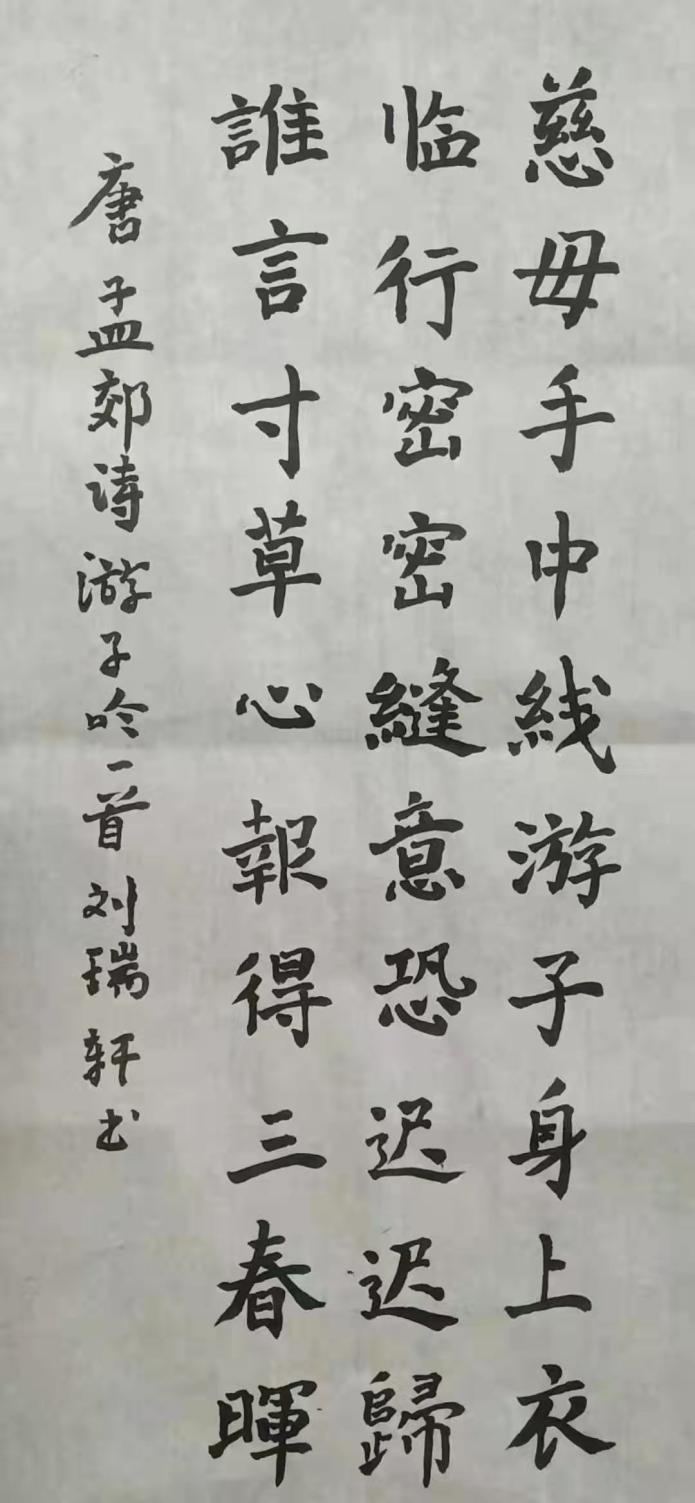 慈母手中线游子身上衣
临行密密縫意恐迟迟歸
誰言寸草心報得三春暉
唐孟郊诗游子吟一首刘瑞轩书